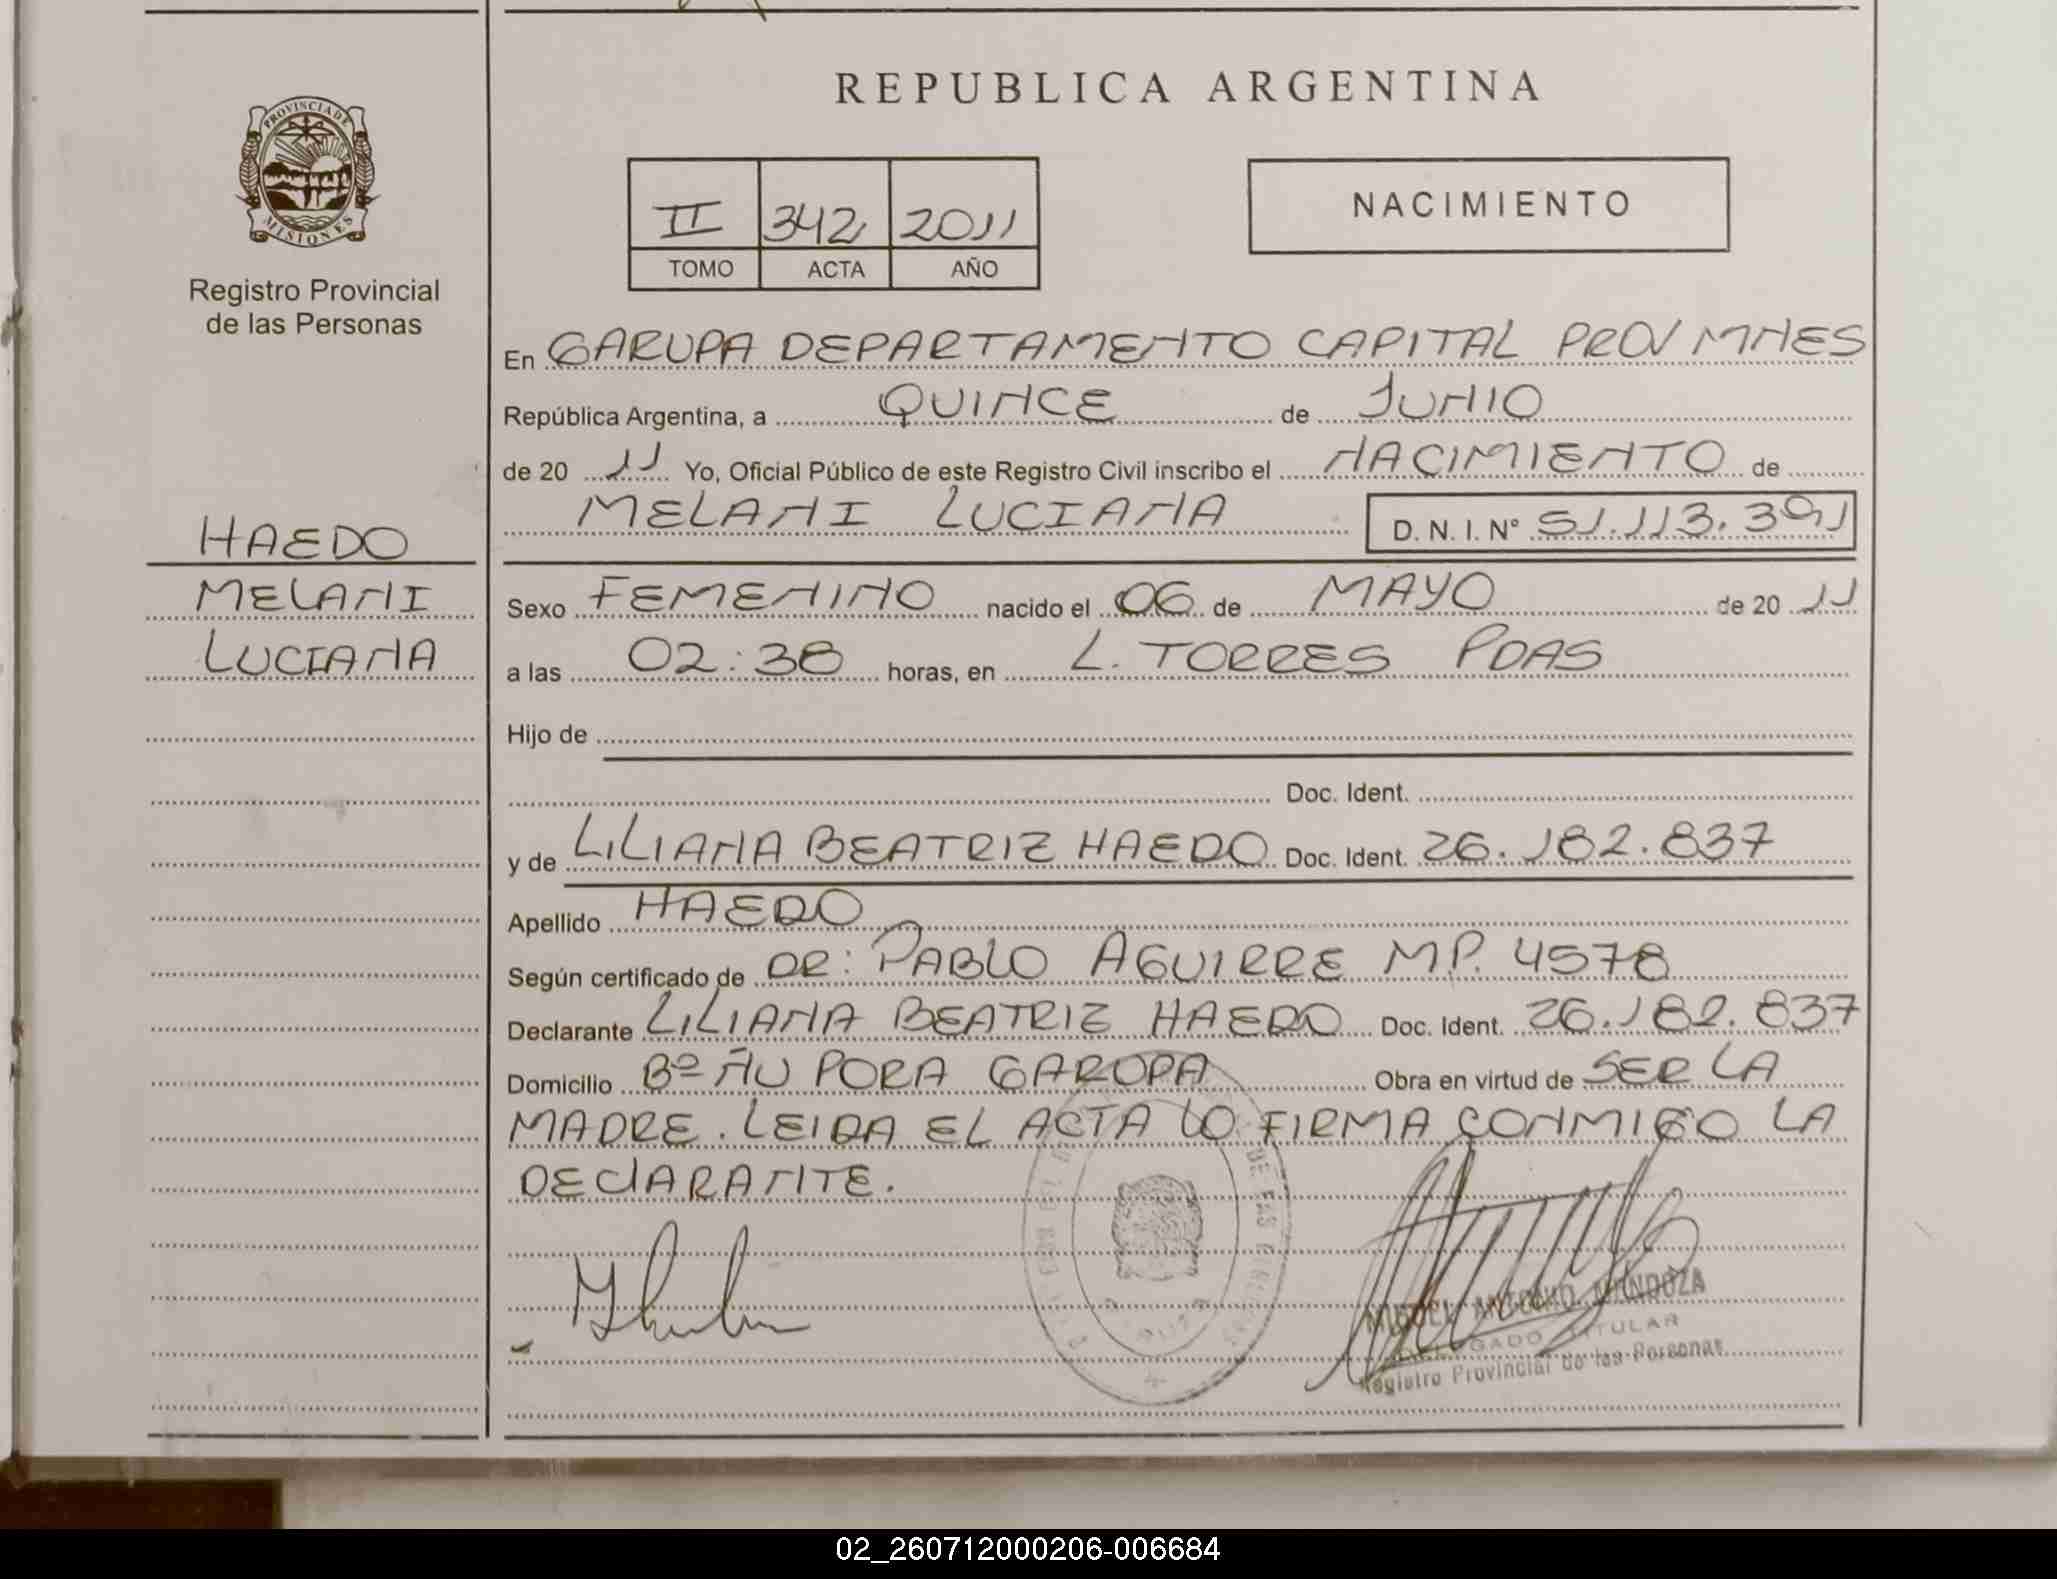 REPUBLICA ARGENTINA
PROVINCIA DE MISIONES
Registro Provincial
de las Personas
II 342 2011
TOMO ACTA AÑO
NACIMIENTO
En GARUPA DEPARTAMENTO CAPITAL PROV MNES
República Argentina, a QUINCE de JUNIO
de 20 11 Yo, Oficial Público de este Registro Civil inscribo el NACIMIENTO de
MELANI LUCIANA D. N. I. N° 51.113.391
HAEDO
MELANI
LUCIANA
Sexo FEMENINO nacido el 06 de MAYO de 20 11
a las 02:38 horas, en L. TORRES PDAS
Hijo de
Doc. Ident.
y de LILIANA BEATRIZ HAEDO Doc. Ident. 26.182.837
Apellido HAEDO
Según certificado de DR: PABLO AGUIRRE MP. 4578
Declarante LILIANA BEATRIZ HAEDO Doc. Ident. 26.182.837
Domicilio Bº ÑU PORA GARUPA Obra en virtud de SER LA
MADRE. LEIDA EL ACTA LO FIRMA CONMIGO LA
DECLARANTE.
MIGUEL ANTONIO MENDOZA
DELEGADO TITULAR
Registro Provincial de las Personas
02_260712000206-006684